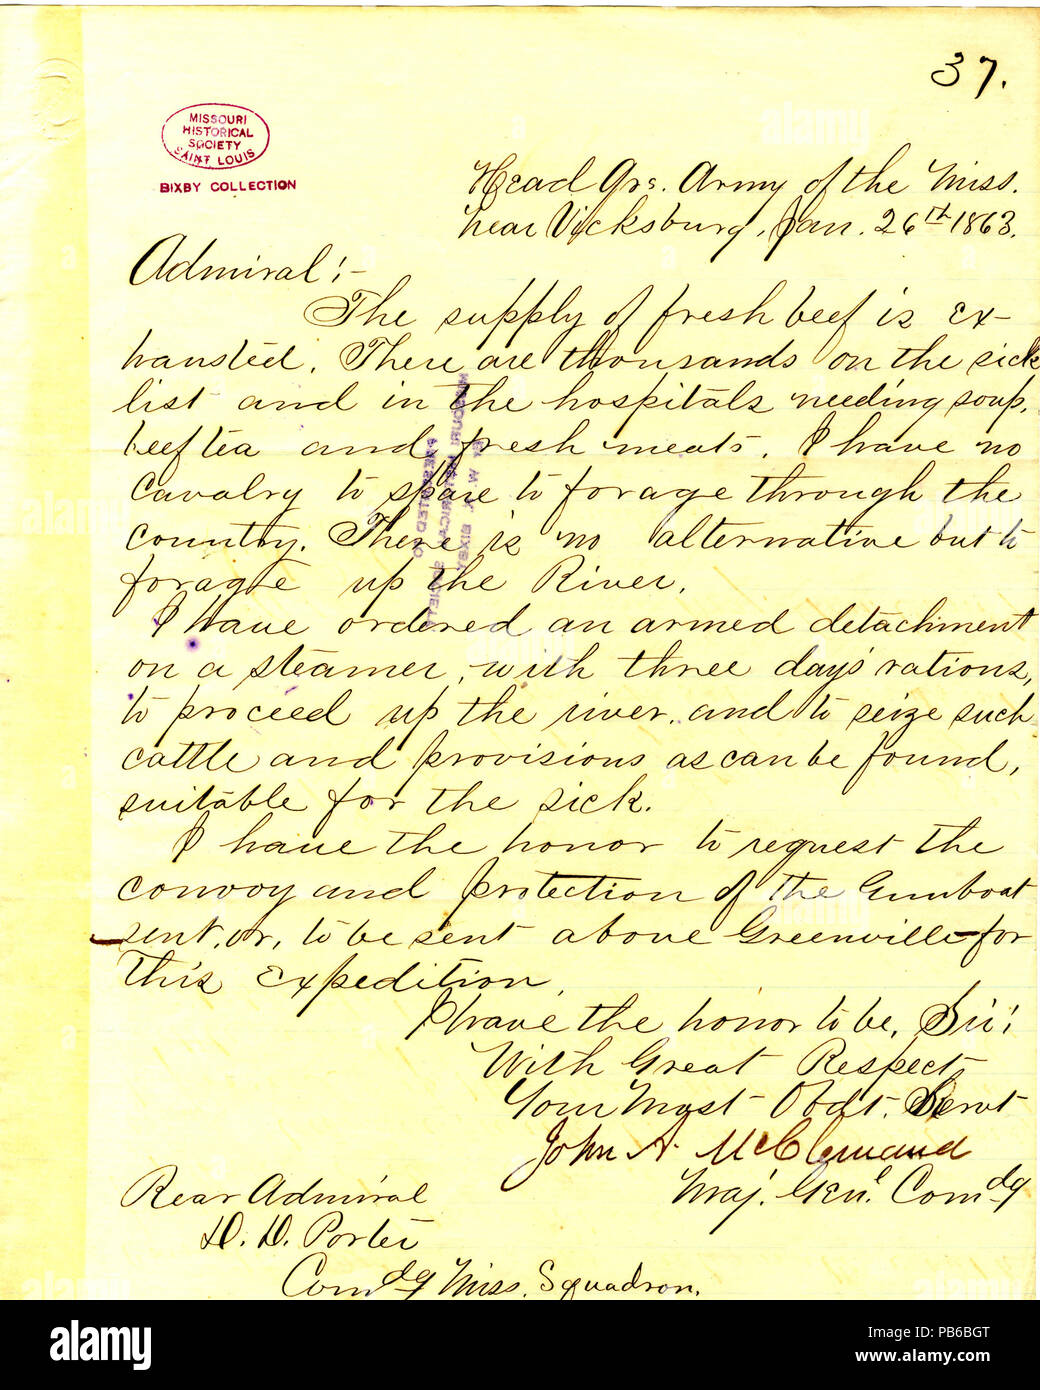 37.
MISSOURI
HISTORICAL
SOCIETY
SAINT LOUIS
BIXBY COLLECTION
Head Qrs. Army of the Miss.
Near Vicksburg, Jan. 26th 1863.
Admiral:-
The supply of fresh beef is ex-
hausted. There are thousands on the sick
list and in the hospitals needing soup,
beef tea and fresh meats. I have no
cavalry to spare to forage through the
country. There is no alternative but to
forage up the River.
I have ordered an armed detachment
on a steamer, with three day's rations,
to proceed up the river, and to seize such
cattle and provisions as can be found,
suitable for the sick.
I have the honor to request the
convoy and protection of the Gunboat
sent, or, to be sent above Greenville—for
this expedition.
I have the honor to be, Sir;
With Great Respect
Your Most Obdt. Servt
John A. McClernand
Maj. Genl. Comdg
Rear Admiral
D. D. Porter
Comdg Miss. Squadron.
PRESENTED TO
MISSOURI HISTORICAL SOCIETY
BY W. K. BIXBY
alamy
Image ID: PB6BGT
www.alamy.com